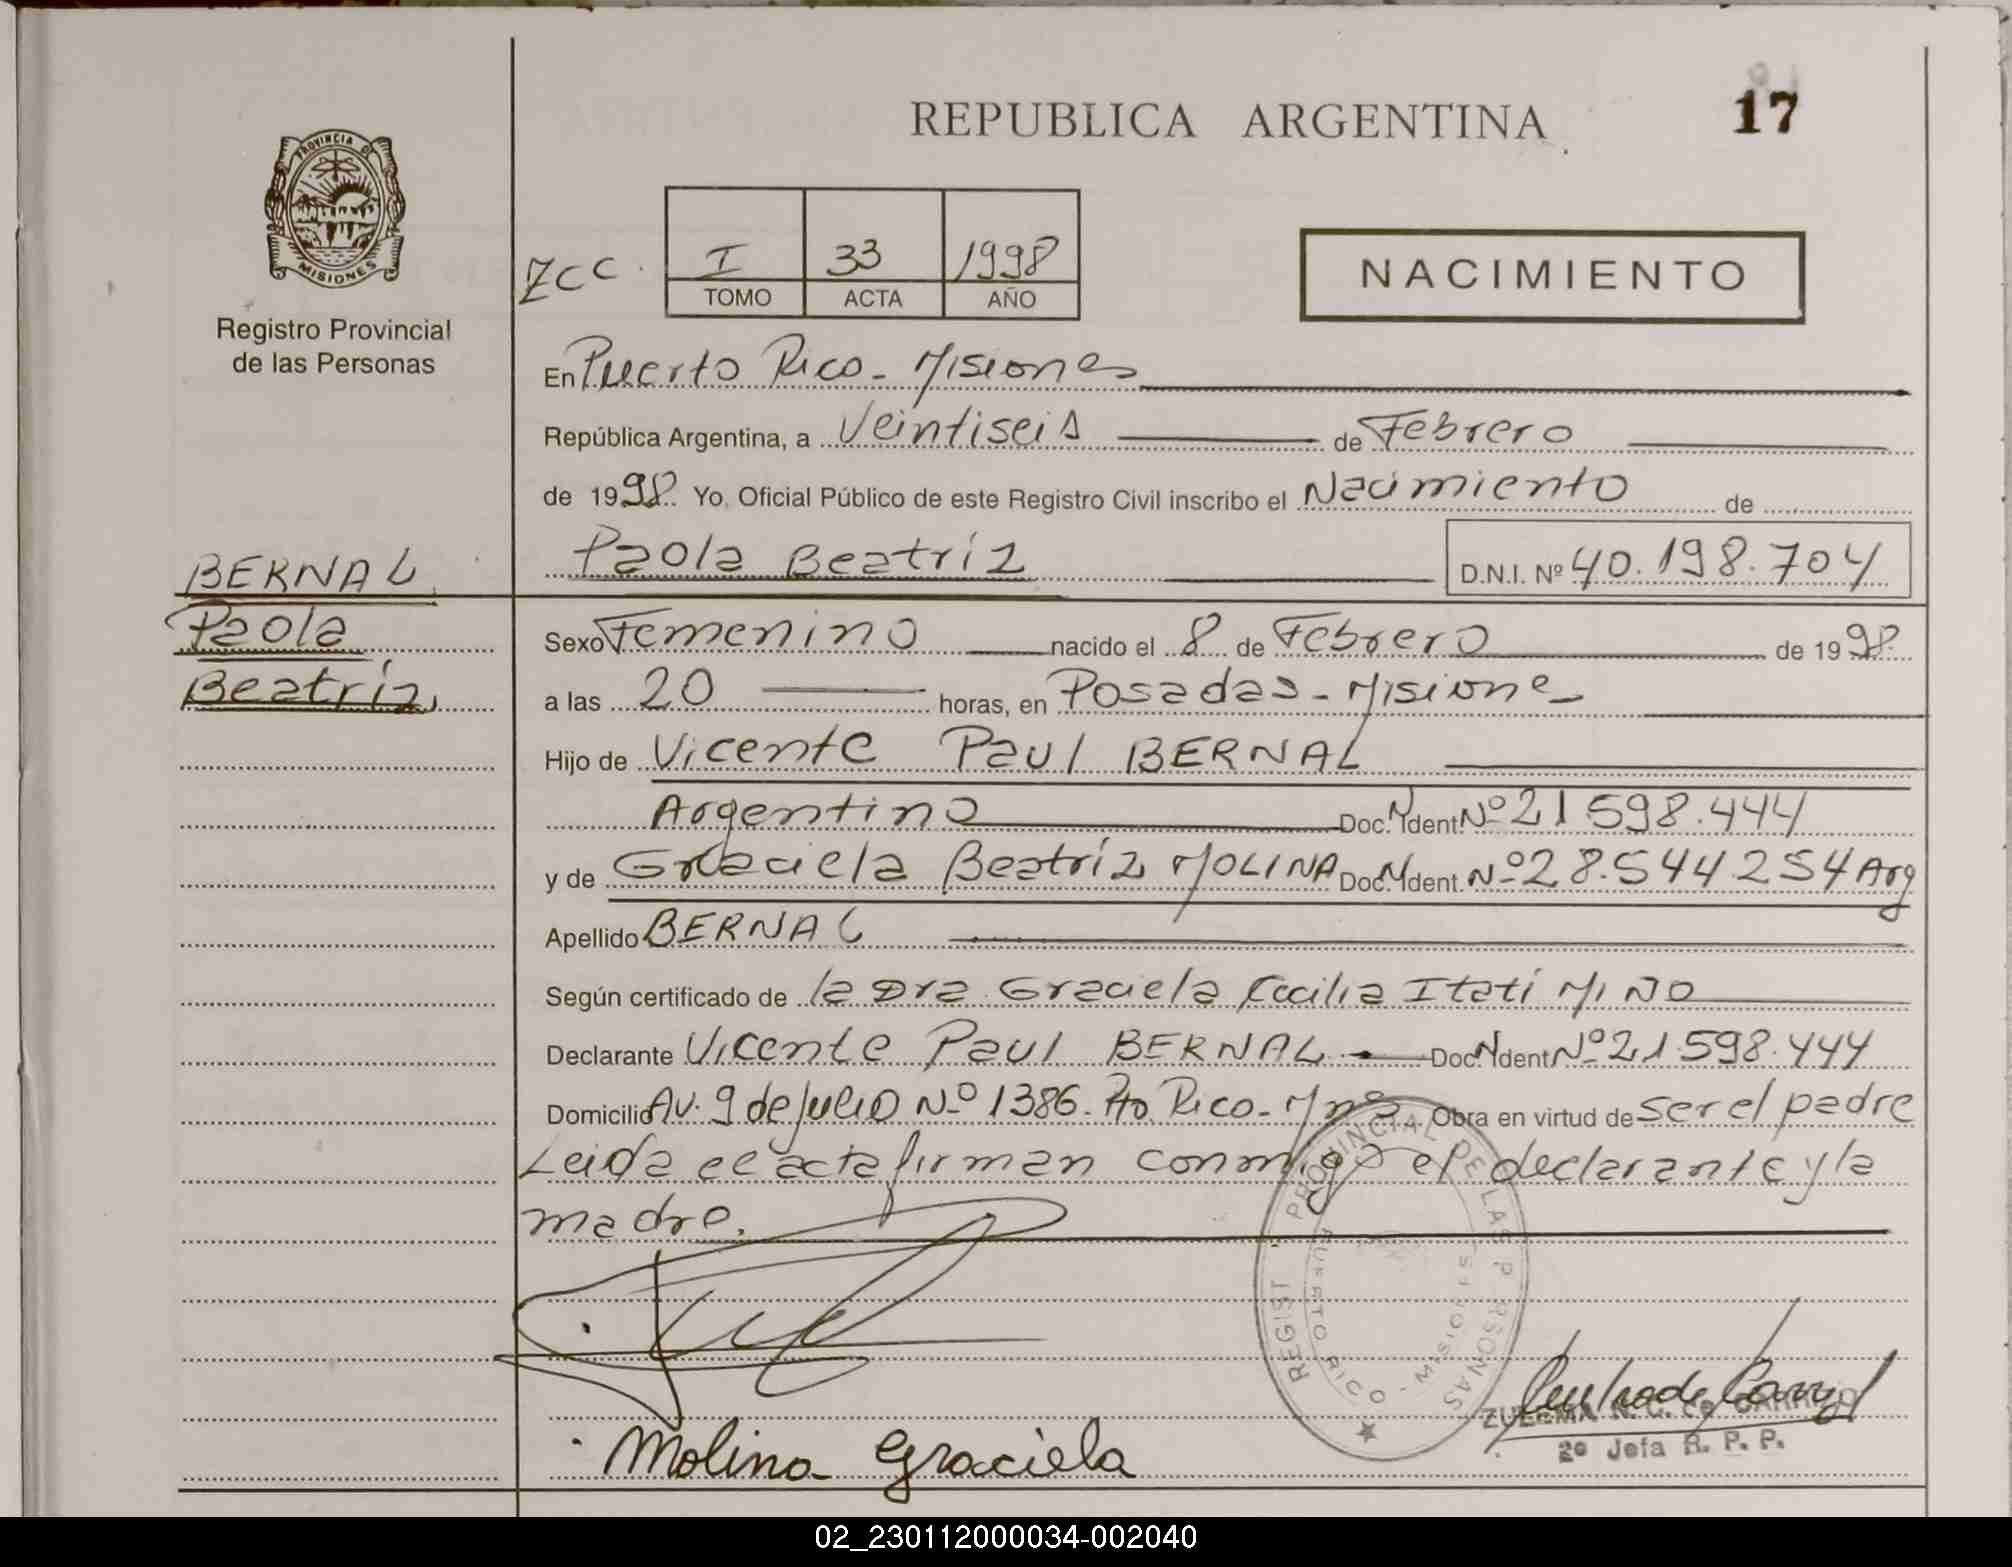 REPUBLICA ARGENTINA
17
PROVINCIA DE
MISIONES
Registro Provincial
de las Personas
ZCC.
I 33 1998
TOMO ACTA AÑO
NACIMIENTO
En Puerto Rico - Misiones
República Argentina, a Veintiseis de Febrero
de 1998. Yo, Oficial Público de este Registro Civil inscribo el Nacimiento de
Paola Beatríz D.N.I. Nº 40.198.704
BERNAL
Paola
Beatríz
Sexo Femenino nacido el 8 de Febrero de 1998.
a las 20 horas, en Posadas - Misiones
Hijo de Vicente Paul BERNAL
Argentino Doc. Ident. Nº 21 598.444
y de Graciela Beatríz MOLINA Doc. Ident. Nº 28.544.254 Arg
Apellido BERNAL
Según certificado de la Dra. Graciela Cecilia Itatí MINO
Declarante Vicente Paul BERNAL Doc. Ident. Nº 21.598.444
Domicilio Av. 9 de julio Nº 1386. Pto. Rico - Mnes Obra en virtud de ser el padre
Leida el acta firman conmigo el declarante y la
madre.
REGIST PROVINCIAL DE LAS P RSONAS
PUERTO RICO - MISIONES
Molina Graciela
ZULEMA N. C. de
2º Jefa R. P. P.
02_230112000034-002040